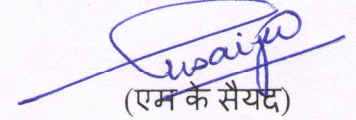 (एम के सैयद)